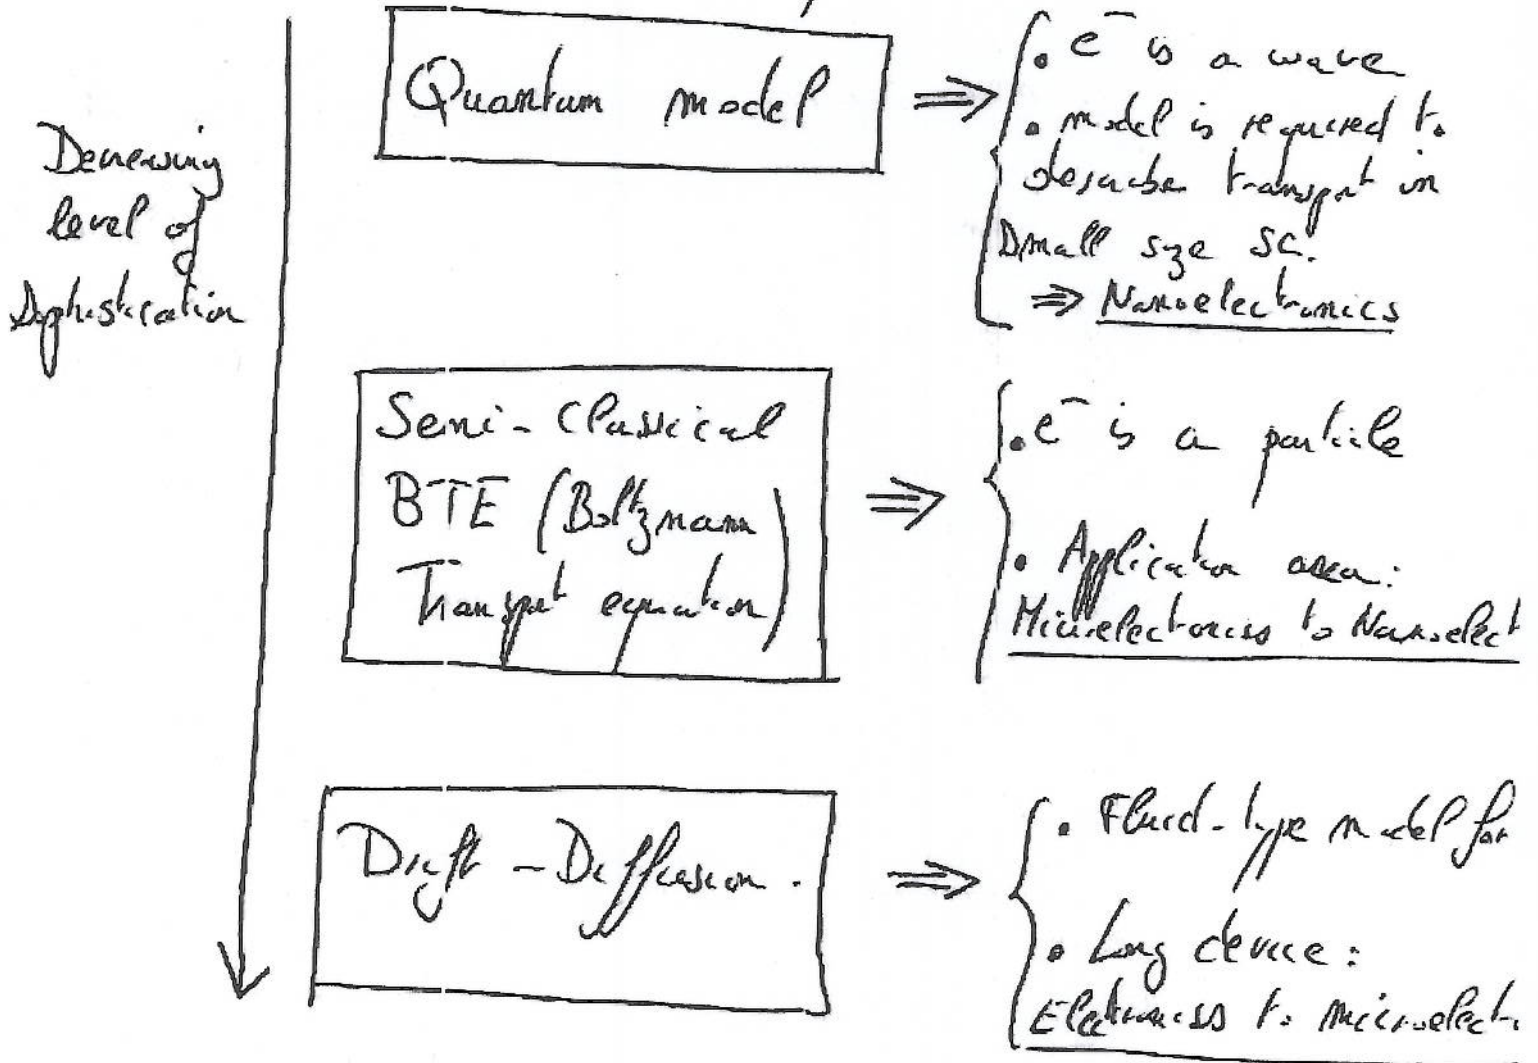 Decreasing
level of
sophistication
Quantum model
⇒
• e⁻ is a wave
• model is required to
describe transport in
small size SC.
⇒ Nanoelectronics
Semi-Classical
BTE (Boltzmann
Transport equation)
⇒
• e⁻ is a particle
• Application area:
Microelectronics to Nanoelect
Drift-Diffusion.
⇒
• Fluid-type model for
• Long device:
Electronics to microelect.